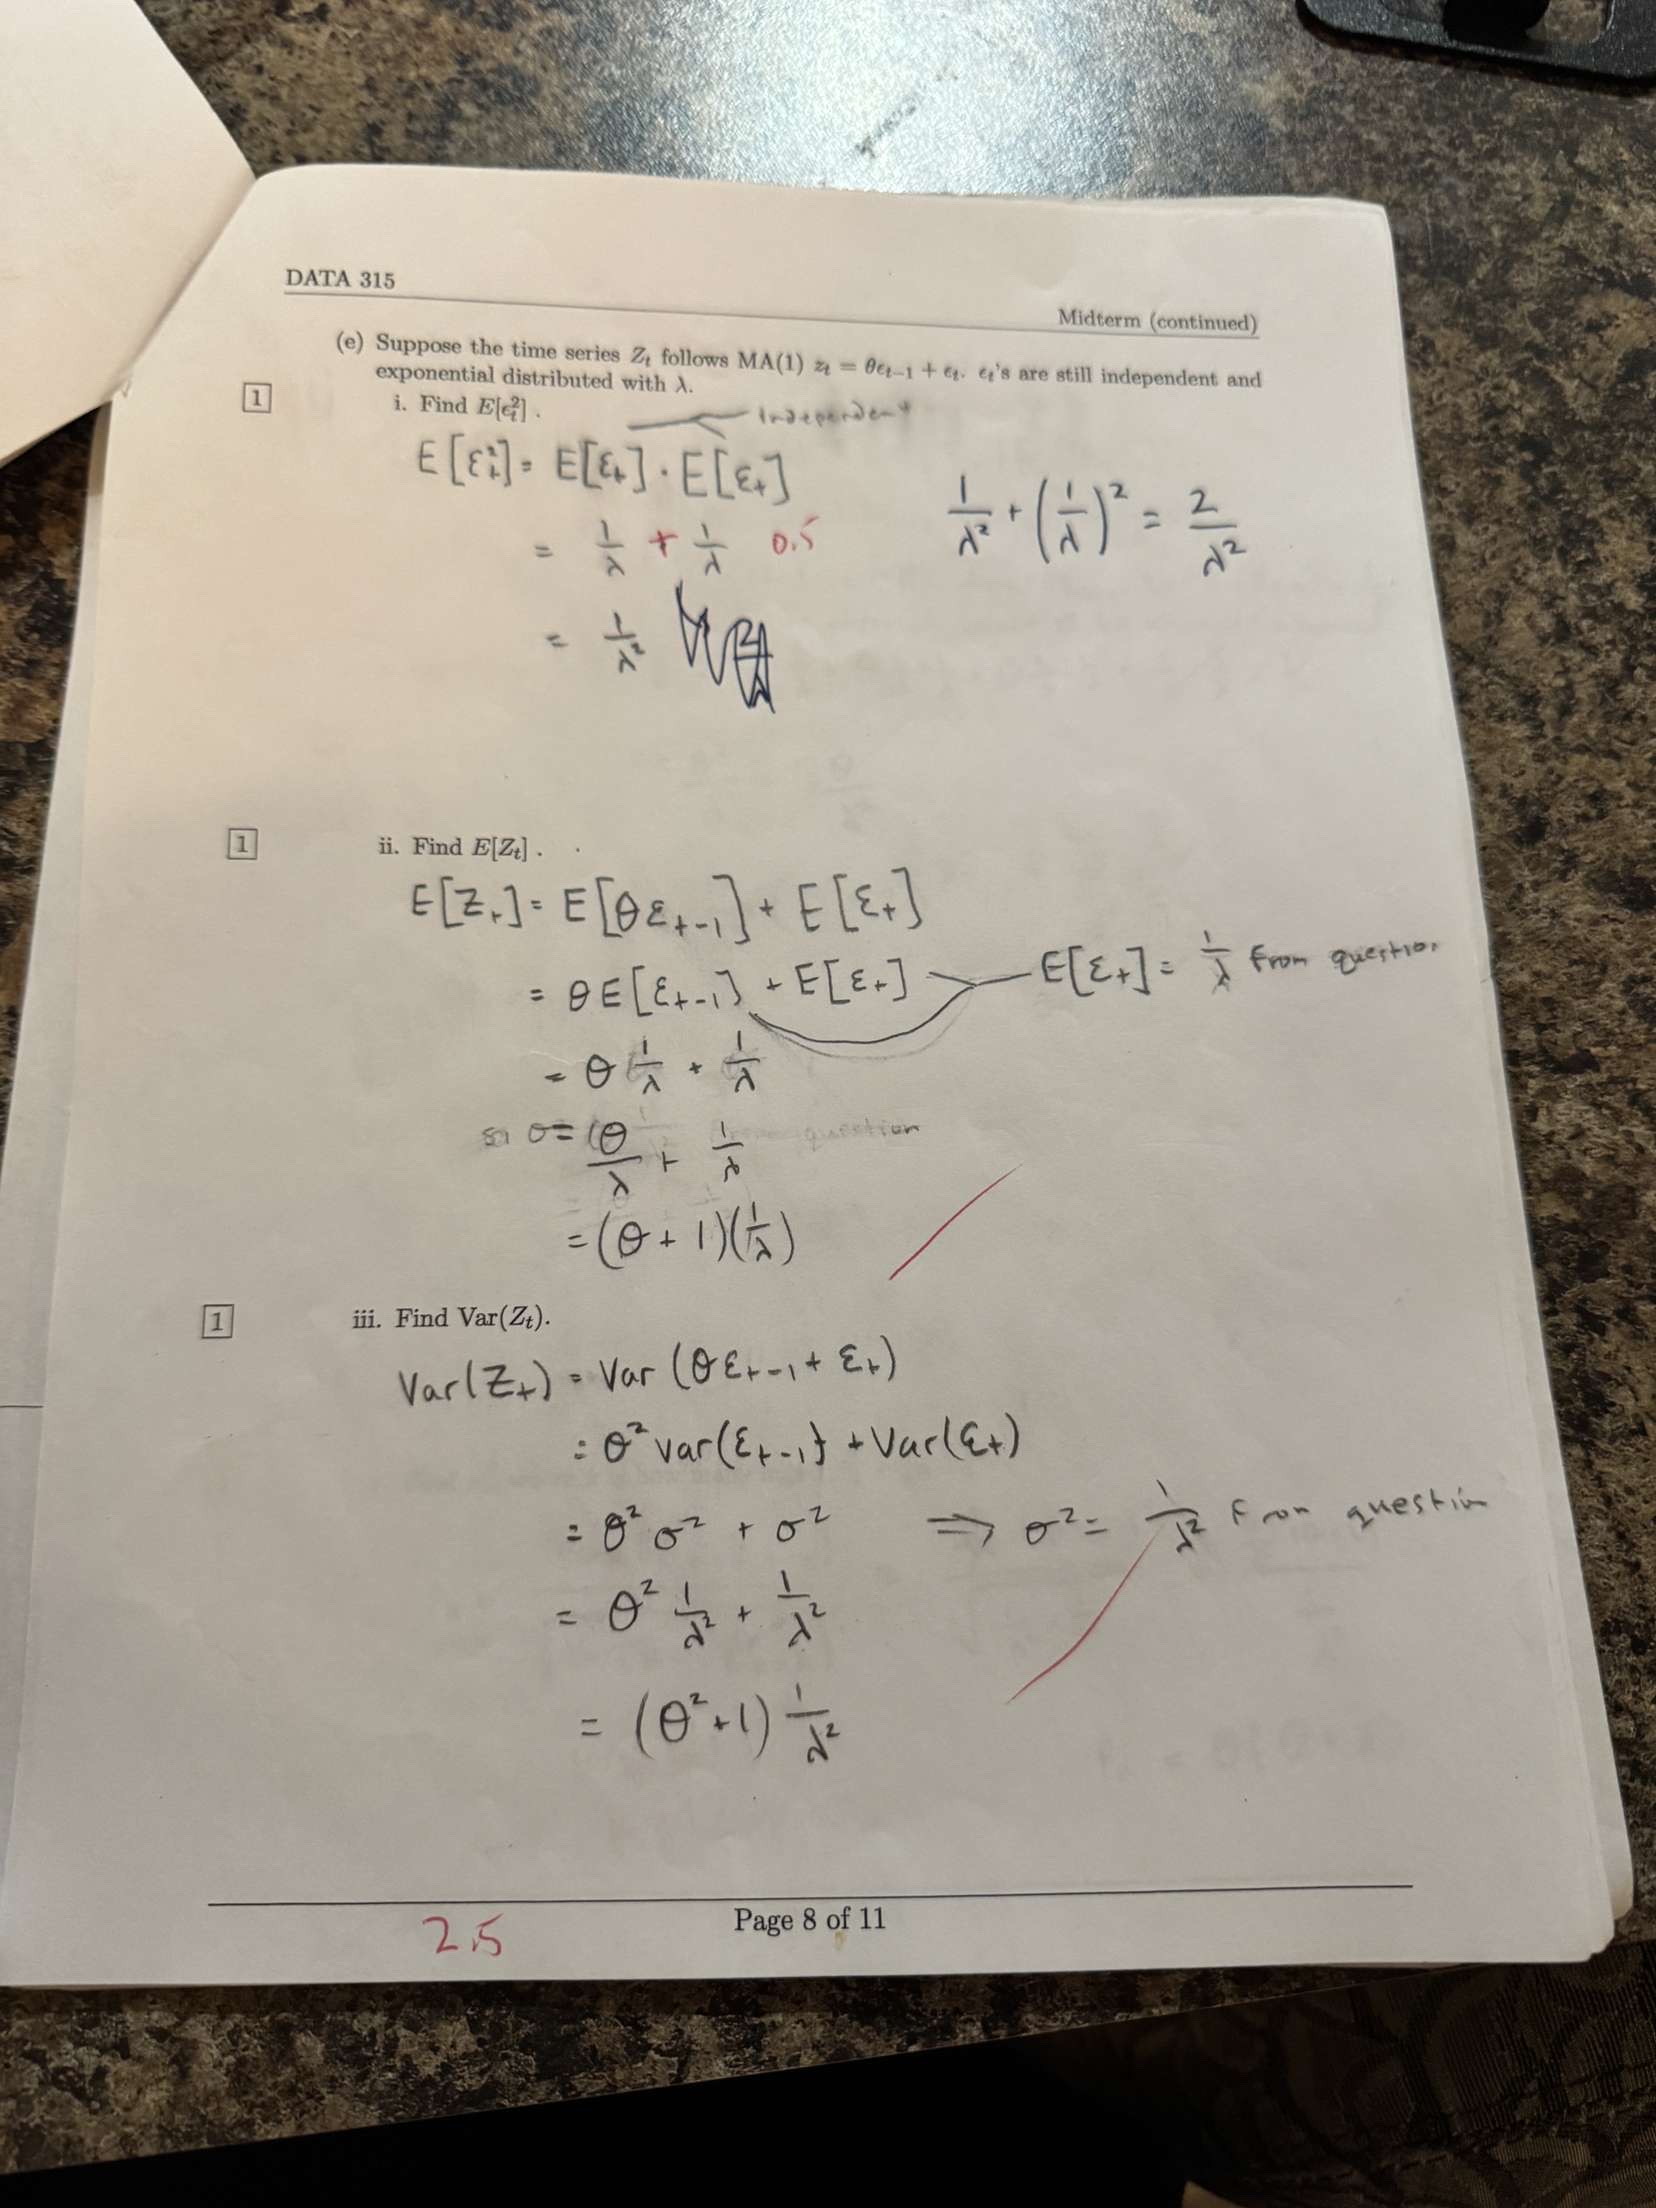 DATA 315
Midterm (continued)
(e) Suppose the time series Z_t follows MA(1) z_t = θϵ_{t−1} + ϵ_t. ϵ_t's are still independent and
exponential distributed with λ.
1
i. Find E[ϵ_t^2] .
independent
E[ε_t^2] = E[ε_t] · E[ε_t]
= 1/λ + 1/λ 0.5
= 1/λ^2
1/λ^2 + (1/λ)^2 = 2/λ^2
1
ii. Find E[Z_t] .
E[Z_t] = E[θε_{t-1}] + E[ε_t]
= θE[ε_{t-1}] + E[ε_t]
E[ε_t] = 1/λ From question
= θ 1/λ + 1/λ
= θ/λ + 1/λ
question
= (θ + 1)(1/λ)
1
iii. Find Var(Z_t).
Var(Z_t) = Var(θε_{t-1} + ε_t)
= θ^2 var(ε_{t-1}) + Var(ε_t)
= θ^2 σ^2 + σ^2 ⇒ σ^2 = 1/λ^2 From question
= θ^2 1/λ^2 + 1/λ^2
= (θ^2+1) 1/λ^2
Page 8 of 11
2.5